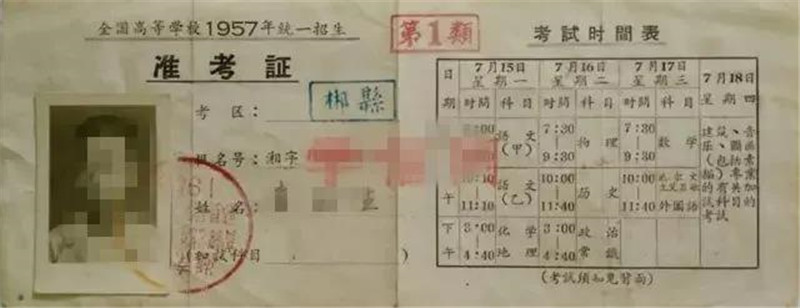 全国高等学校1957年統一招生
准考証
考区：
郴縣
報名号：湘字
姓名：
(加試科目)
第1類
考試時間表
日期
7月15日 星期一
7月16日 星期二
7月17日 星期三
7月18日 星期四
時間 科目 時間 科目 時間 科目
語文(甲) 7:30 9:30 物理 7:30 9:30 数学
午 10:10 11:40 語文(乙) 10:00 11:40 历史 10:00 11:40 外国語
下午 3:00 4:40 化学 地理 3:00 4:40 政治 常識
建筑、音乐、圖画(包括素描)專業的有关加試科目的考試
(考試須知見背面)